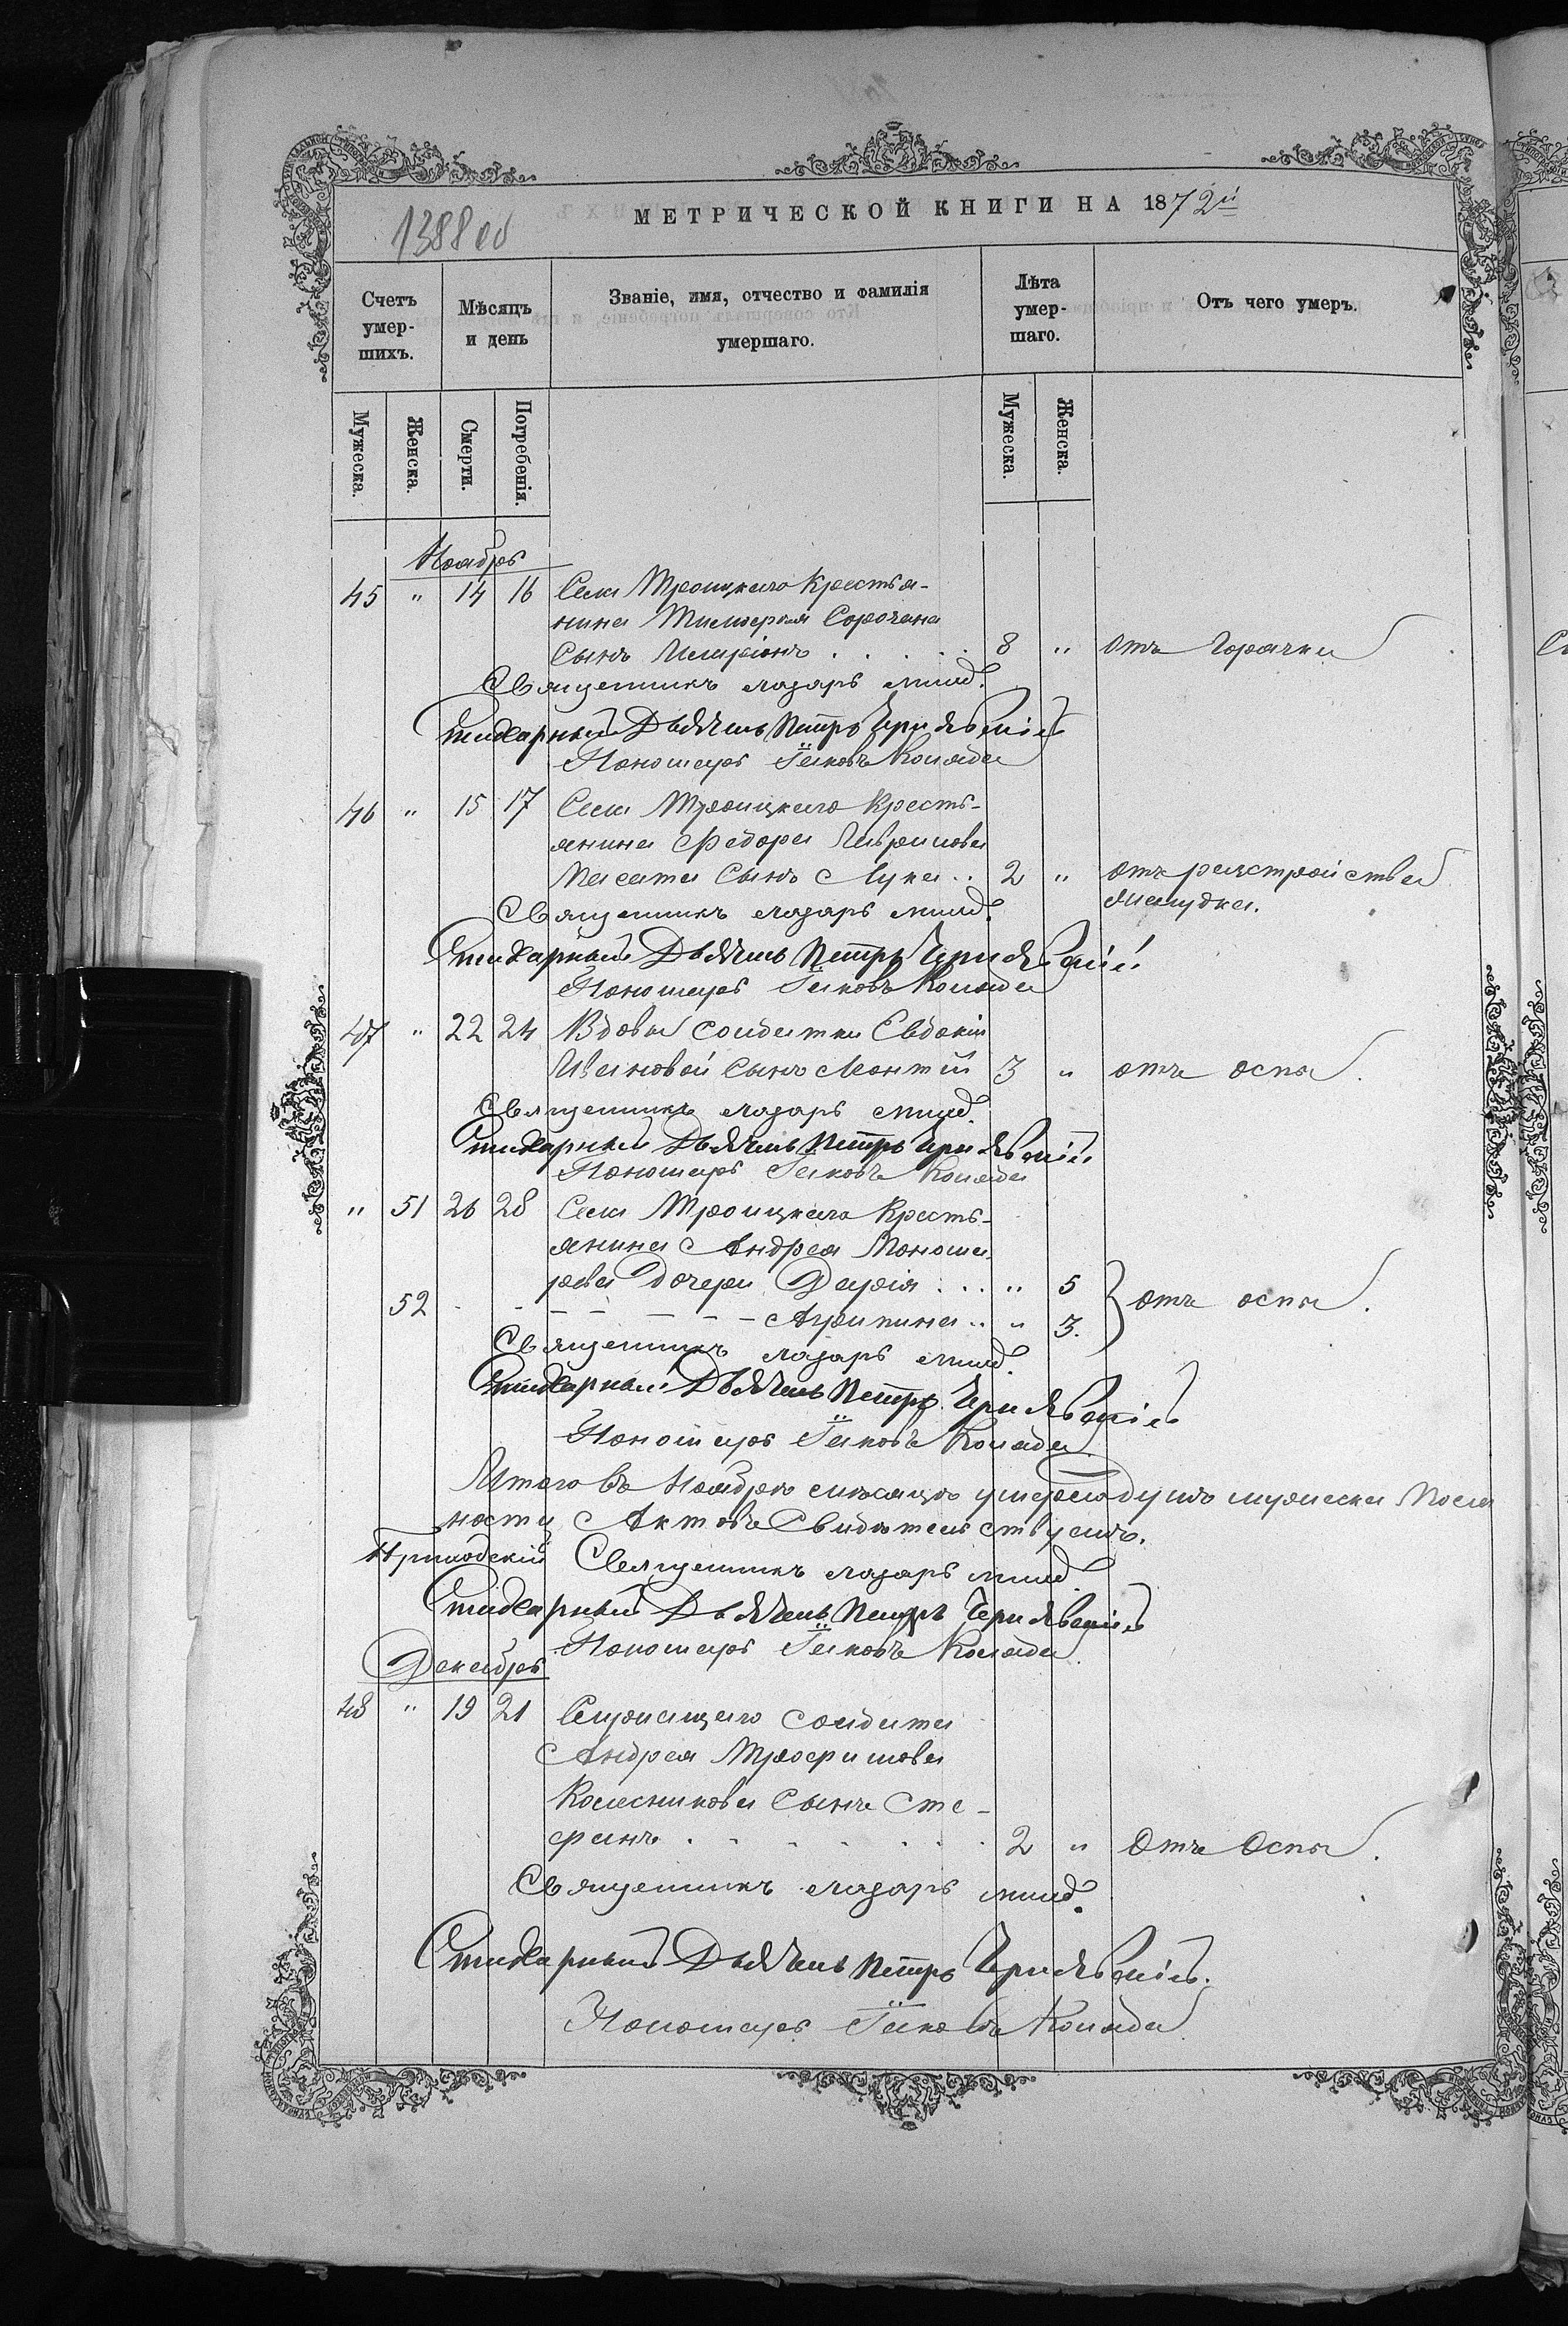 МЕТРИЧЕСКОЙ КНИГИ НА 1872й
1388 об
Счетъ умер- шихъ.
Мѣсяцъ и день
Званіе, имя, отчество и фамилія умершаго.
Лѣта умер- шаго.
Отъ чего умеръ.
Мужеска. Женска. Смерти. Погребенія. Мужеска. Женска.
Ноябрь
45 " 14 16 Села Троицкаго Крестья-
нина Тимофея Сорочана
Сынъ Иларіонъ . . . . . 8 " Отъ Горячки
Священникъ Лазарь
Стихарный Дьячекъ Петръ Чернявскій
Пономарь Іаковъ Коляда
46 " 15 17 Села Троицкаго Кресть-
янина Федора Гаврилова
сынъ Лука .. 2 " Отъ разстройства
желудка.
Священникъ Лазарь
Стихарный Дьячекъ Петръ Чернявскій
Пономарь Іаковъ Коляда
47 " 22 24 Вдовы солдатки Евдокіи
Ивановой Сынъ Леонтій 3 " отъ оспы.
Священникъ Лазарь
Стихарный Дьячекъ Петръ Чернявскій
Пономарь Іаковъ Коляда
" 51 26 28 Села Троицкаго Кресть-
янина Андрея Понома-
рева дочери Дарія . . . " 5
52 - - - - - - - Агрипина .. " 3. } отъ оспы.
Священникъ Лазарь
Стихарный Дьячекъ Петръ Чернявскій
Пономарь Іаковъ Коляда
Итого въ Ноябрѣ мѣсяцѣ умерло душъ мужеска
ности Актовъ Свидѣтельствуемъ.
Приходскій Священникъ Лазарь
Стихарный Дьячекъ Петръ Чернявскій
Пономарь Іаковъ Коляда
Декабрь
48 " 19 21 Служащаго солдата
Андрея Трофимова
Колесникова Сынъ Сте-
фанъ . . . . . . . 2 " Отъ Оспы.
Священникъ Лазарь
Стихарный Дьячекъ Петръ Чернявскій.
Пономарь Іаковъ Коляда